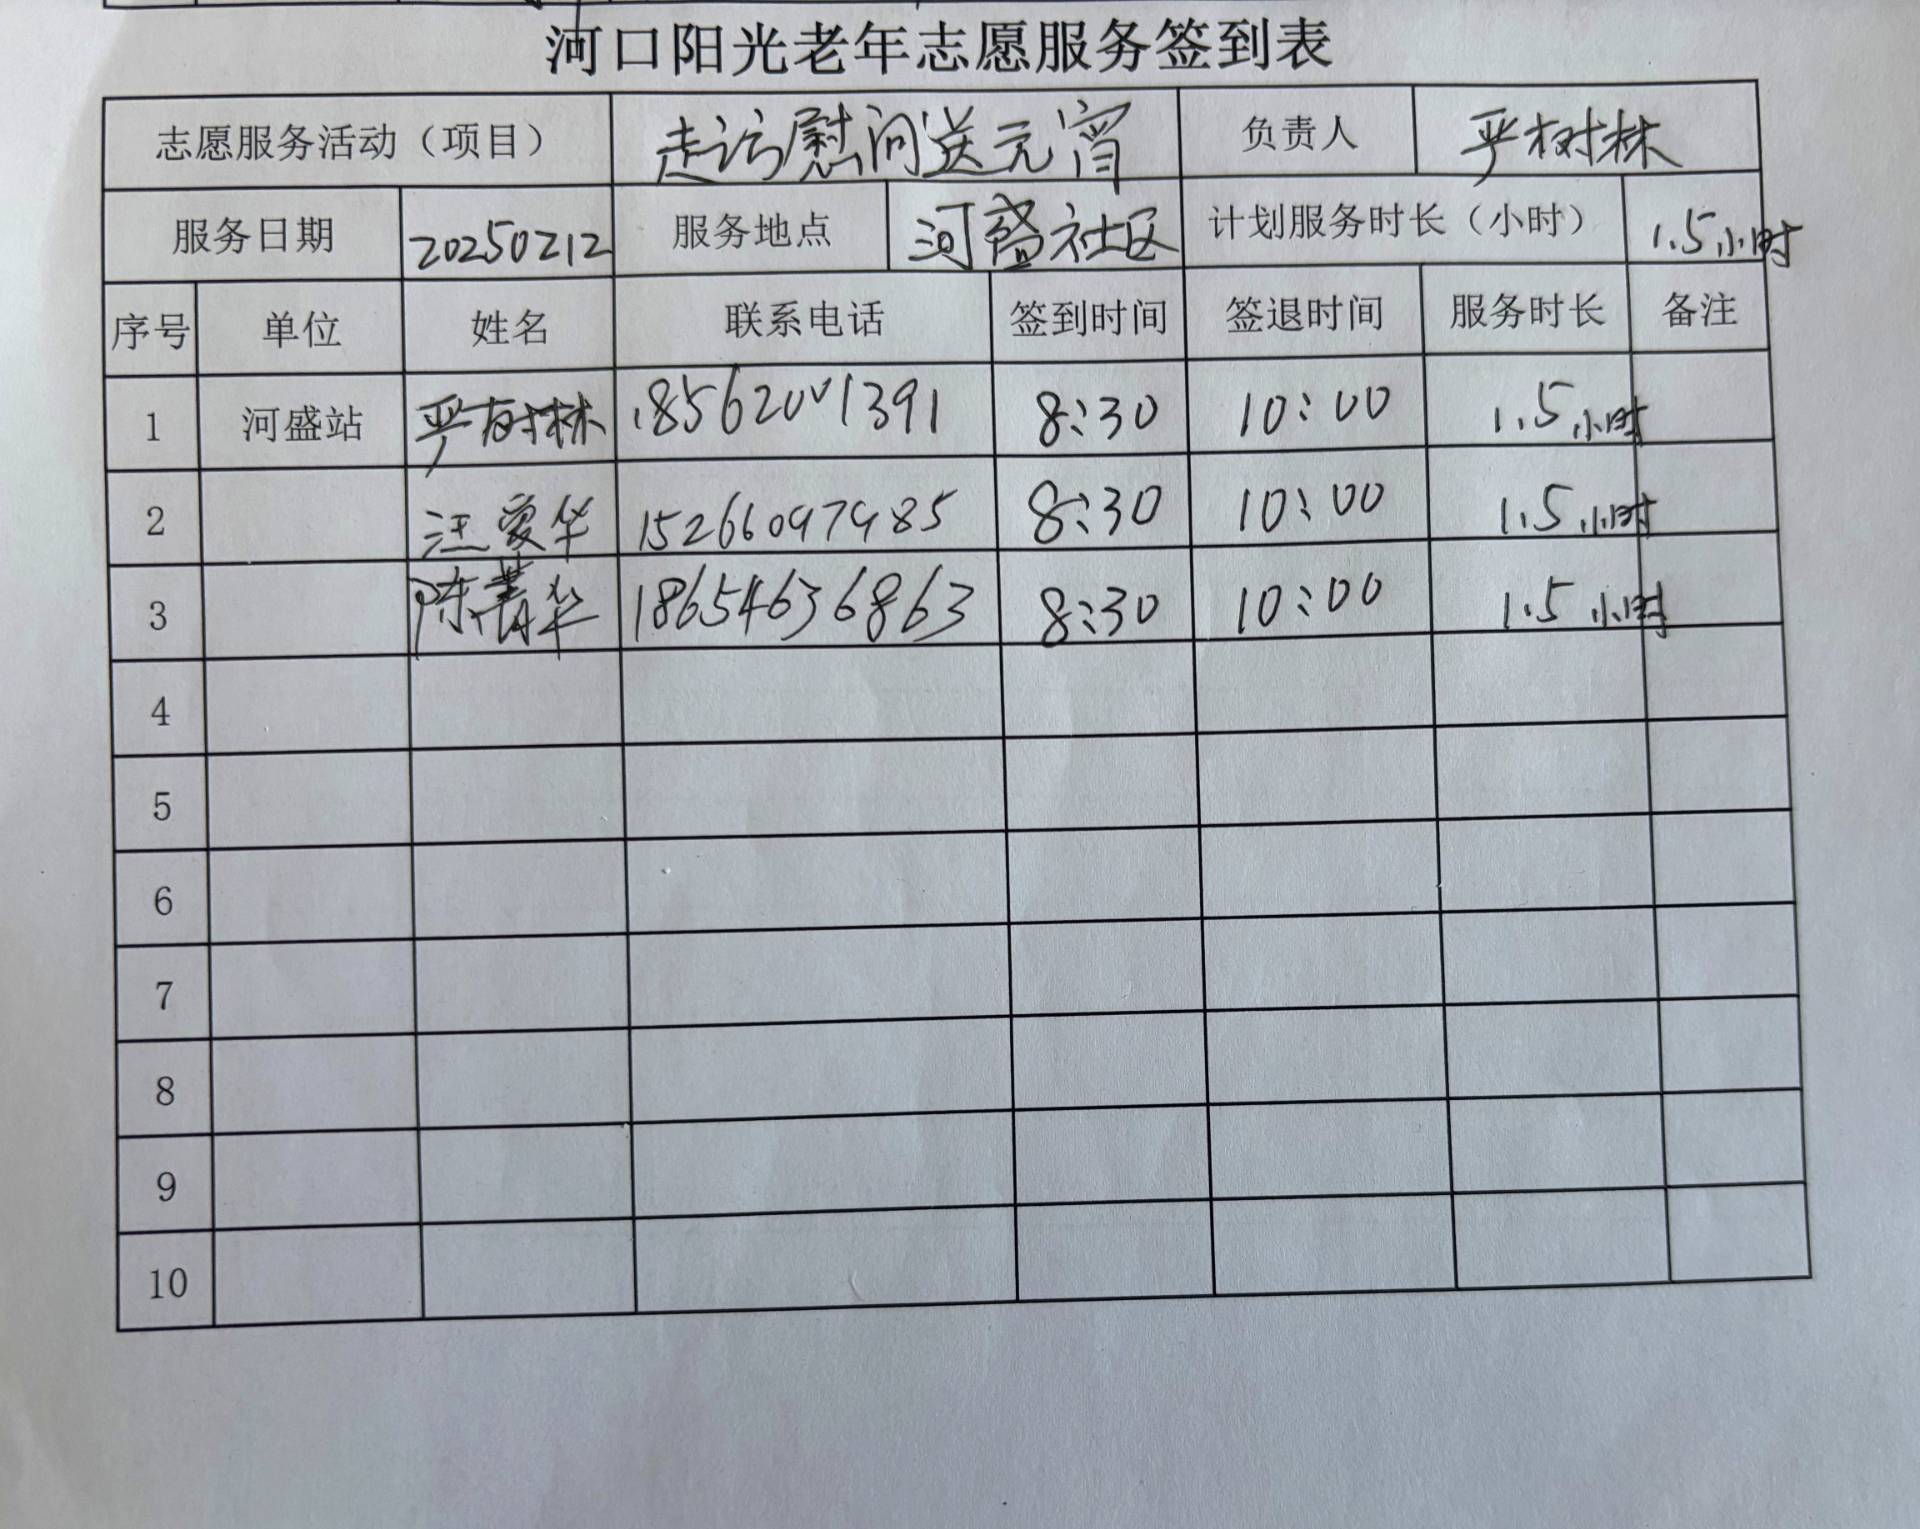 河口阳光老年志愿服务签到表
志愿服务活动（项目） 走访慰问送元宵 负责人 严树林
服务日期 20250212 服务地点 河盛社区 计划服务时长（小时） 1.5小时
序号 单位 姓名 联系电话 签到时间 签退时间 服务时长 备注
1 河盛站 严树林 18562001391 8:30 10:00 1.5小时
2 汪爱华 15266097985 8:30 10:00 1.5小时
3 陈菁华 18654636863 8:30 10:00 1.5小时
4
5
6
7
8
9
10